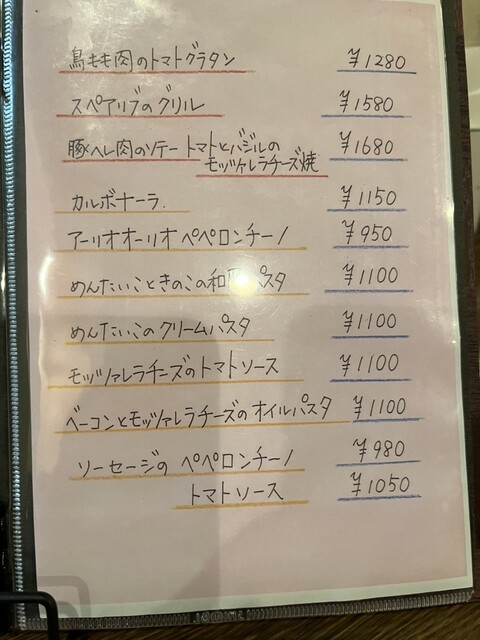 鳥もも肉のトマトグラタン ¥1280
スペアリブのグリル ¥1580
豚ヘレ肉のソテー トマトとバジルの
モッツァレラチーズ焼 ¥1680
カルボナーラ. ¥1150
アーリオオーリオ ペペロンチーノ ¥950
めんたいこときのこの和風パスタ ¥1100
めんたいこのクリームパスタ ¥1100
モッツァレラチーズのトマトソース ¥1100
ベーコンとモッツァレラチーズのオイルパスタ ¥1100
ソーセージの ペペロンチーノ ¥980
トマトソース ¥1050